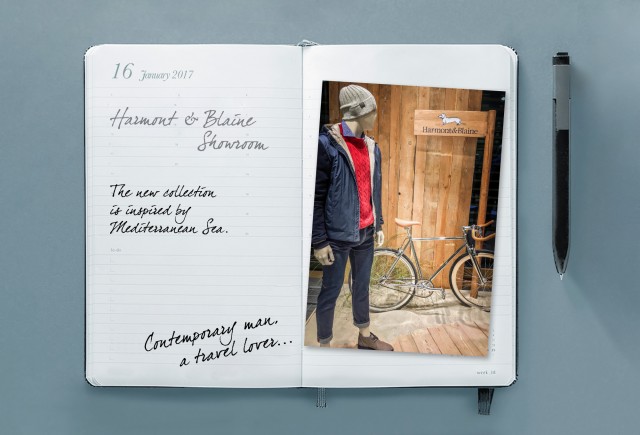 16 January 2017
Harmont & Blaine
Showroom
The new collection
is inspired by
Mediterranean Sea.
Contemporary man,
a travel lover...
Harmont&Blaine